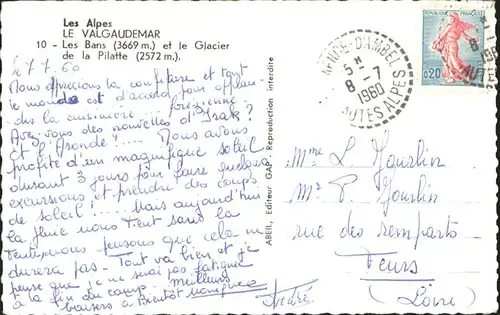 Les Alpes
LE VALGAUDEMAR
10 - Les Bans (3669 m.) et le Glacier
de la Pilatte (2572 m.).
le 7.7.60
Nous apprécions la confiture et tout
le monde est d'accord pour applau-
dir la cuisinière
Avez-vous des nouvelles d'
Et l'Aronde ! Nous avons
profité d'un magnifique soleil
durant 3 jours pour faire quelques
excursions et prendre des coups
de soleil ! Mais aujourd'hui
la pluie nous tient sans la
tente nous pensons que cela ne
durera pas - Tout va bien et je
pense que je ne serai pas fatigué
à la fin du camp. Meilleurs
baisers à Bientôt Monique
André
ABEIL, Editeur GAP - Reproduction interdite
RÉPUBLIQUE FRANÇAISE
0,20
5 H
8 - 7
1960
HAUTES ALPES
Mme L.
Mr P.
rue des remparts
Feurs
(Loire)